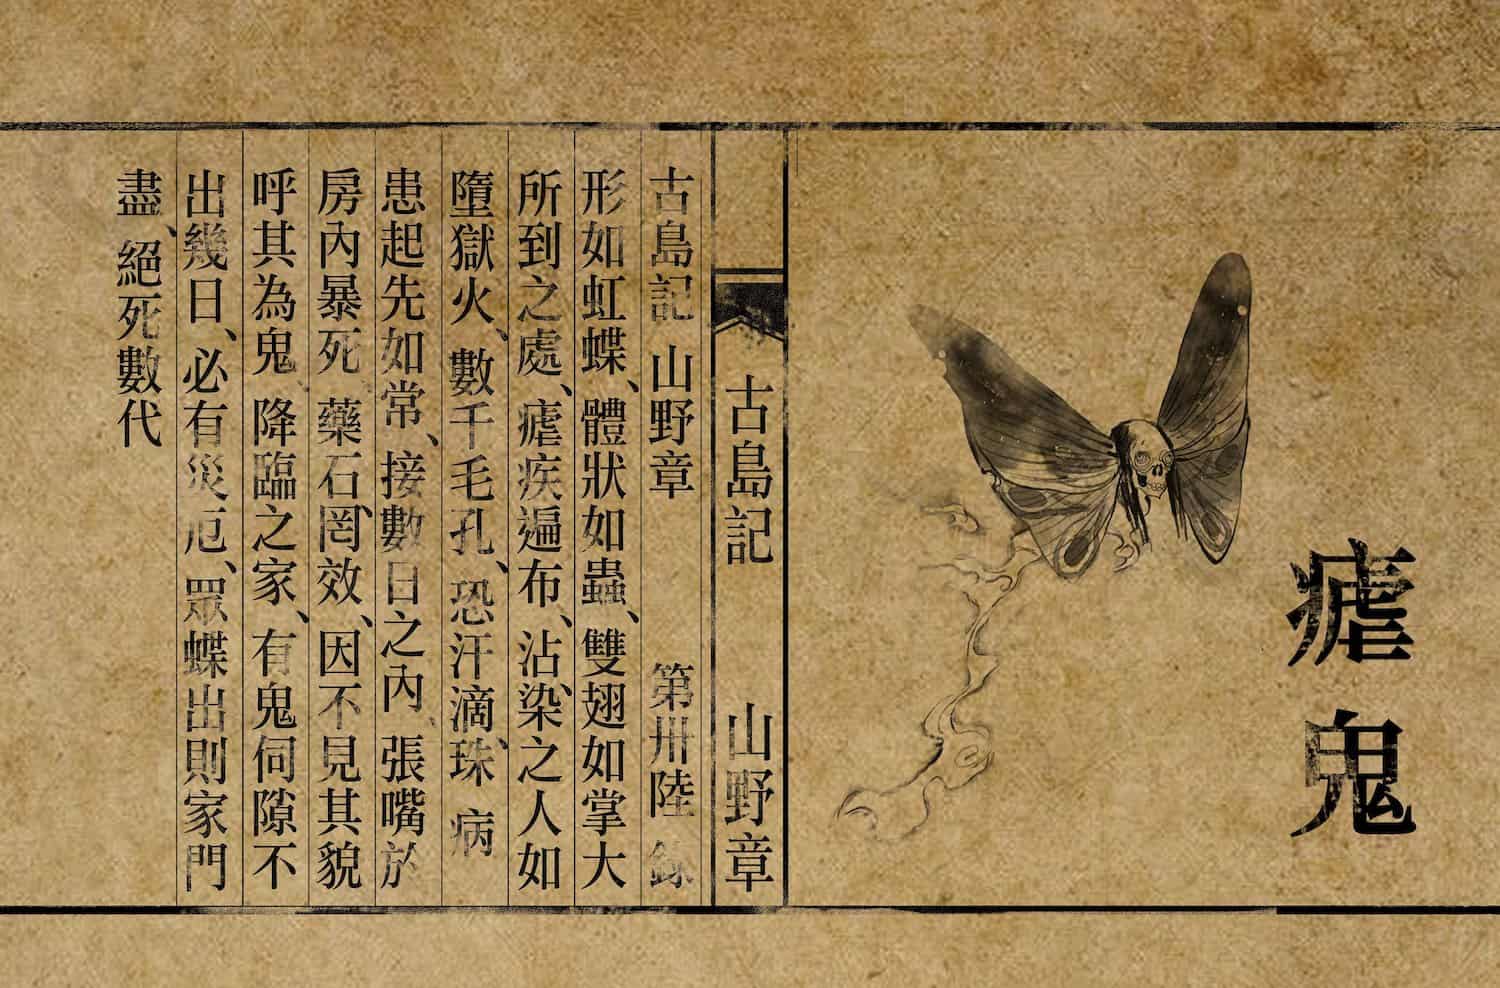 瘧鬼
古島記 山野章
古島記 山野章 第卅陸 錄
形如虹蝶、體狀如蟲、雙翅如掌大
所到之處、瘧疾遍布、沾染之人如
墮獄火、數千毛孔、恐汗滴珠、病
患起先如常、接數日之內、張嘴於
房內暴死、藥石罔效、因不見其貌
呼其為鬼、降臨之家、有鬼伺隙不
出幾日、必有災厄、眾蝶出則家門
盡、絕死數代